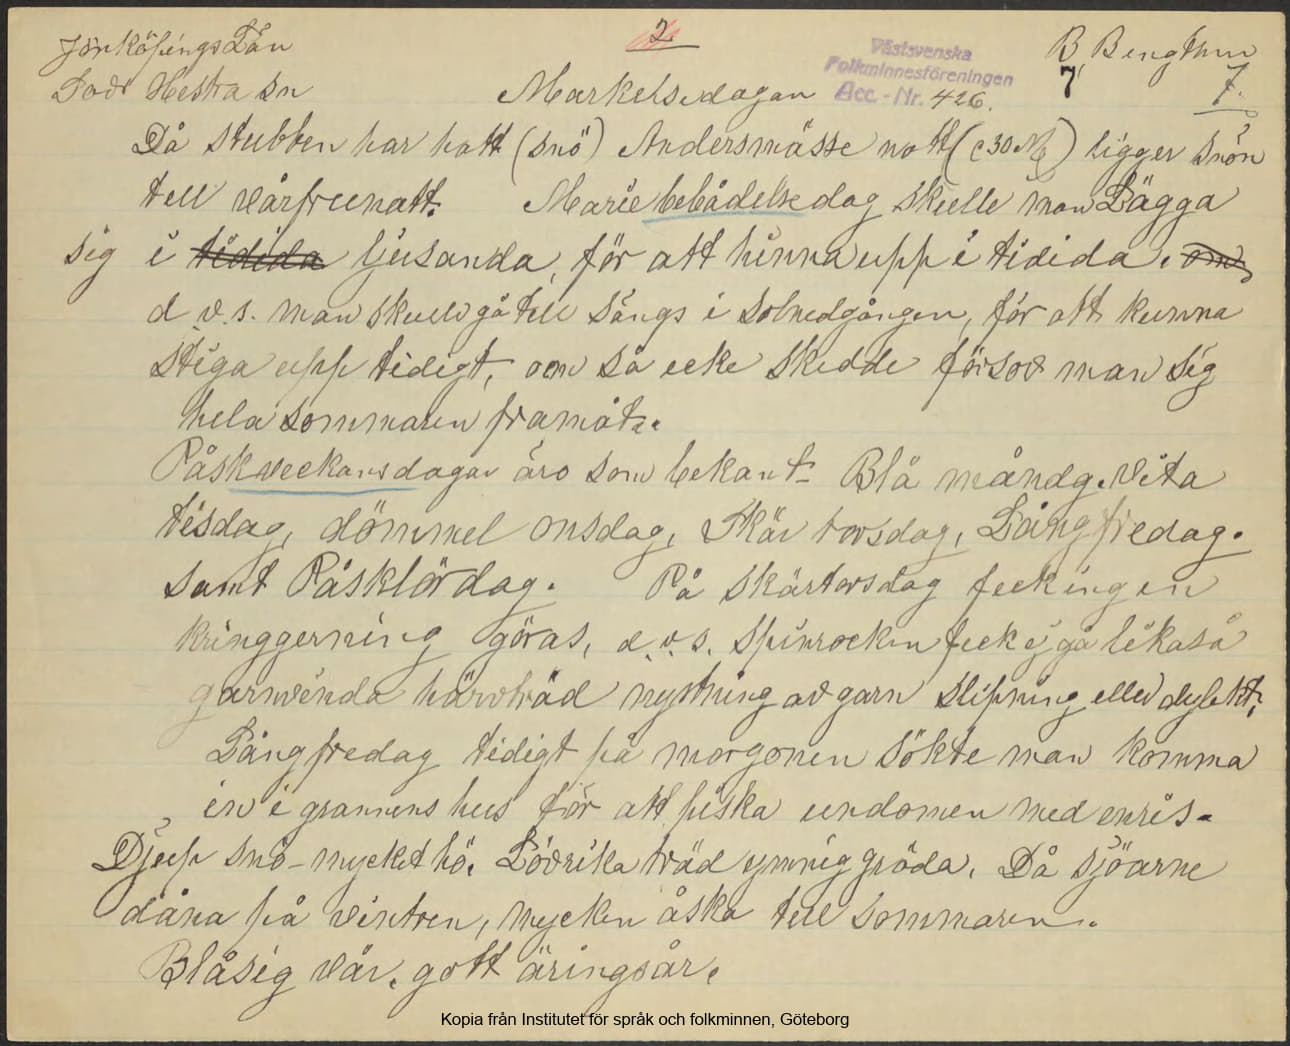 Jönköpings Län
2.
B. Bengtsson
Södr Hestra Sn
Västsvenska
Folkminnesföreningen
Acc.-Nr. 426.
7
7.
Markelsedagan
Då stubben har hatt (snö) Andersmässe natt (30/11) ligger snön
till vårfrunatt. Marie bebådelsedag skulle man Lägga
sig i tidida ljusanda, för att hinna upp i tidida. om
d.v.s. man skulle gå till sängs i solnedgången, för att kunna
stiga upp tidigt, om så icke skedde försov man sig
hela sommaren framåt.
Påskveckansdagar äro som bekant Blå måndg. Vita
tisdag, dömmel onsdag, Skär torsdag, Långfredag.
samt Påsklördag. På skärtorsdag fick ingen
kringgerning göras, d.v.s. spinrocken fick ej gå likaså
garnvinda härvträd nystning av garn slipning eller dylikt.
Långfredag tidigt på morgonen sökte man komma
in i grannens hus för att piska undomen med enris.
Djup snö - mycket hö. Lövrika träd ymnig gröda. Då sjöarne
dåna på vintren, mycken åska till sommaren.
Blåsig vår. gott äringsår.
Kopia från Institutet för språk och folkminnen, Göteborg